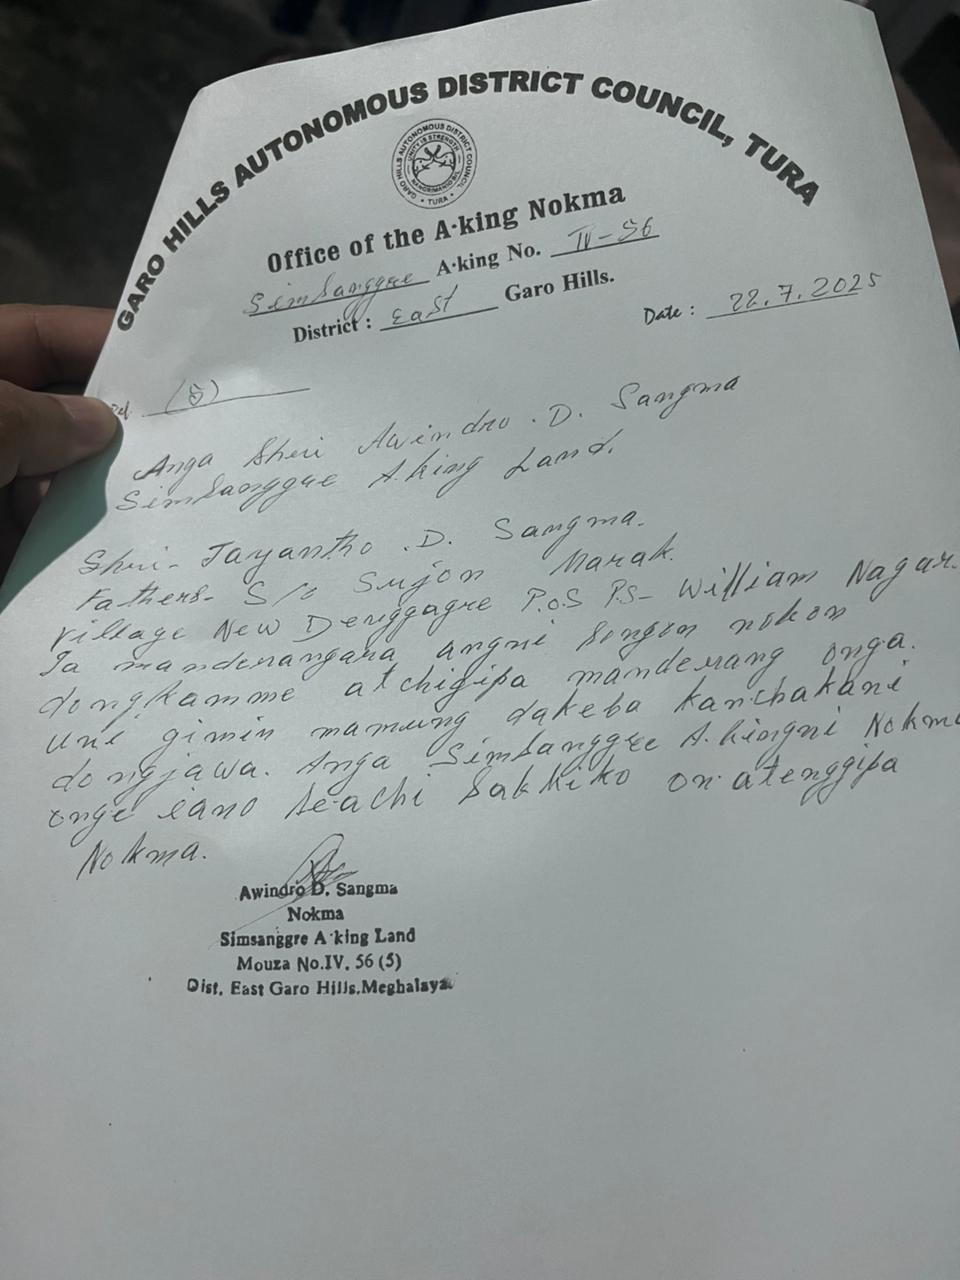 GARO HILLS AUTONOMOUS DISTRICT COUNCIL, TURA
GARO HILLS AUTONOMOUS DISTRICT COUNCIL
UNITY IS STRENGTH
• TURA •
Office of the A·king Nokma
Simsanggre A·king No. IV-56
District : East Garo Hills.
Date : 22.7.2025
Ref. (5)
Anga Shri Awindro .D. Sangma
Simsanggre A.king Land.
Shri- Jayantho .D. Sangma.
Fathers- S/o Sujon Marak.
Village New Denggagre P.O.S P.S- William Nagar.
Ia manderangara angni songon nokon
dongkamme atchigipa manderang onga.
Uni gimin mamung dakeba kanchakani
dongjawa. Anga Simsanggre A.kingni Nokma
onge iano se·achi sakkiko on·atenggipa
Nokma.
Awindro D. Sangma
Nokma
Simsanggre A·king Land
Mouza No.IV. 56 (5)
Dist. East Garo Hills.Meghalaya